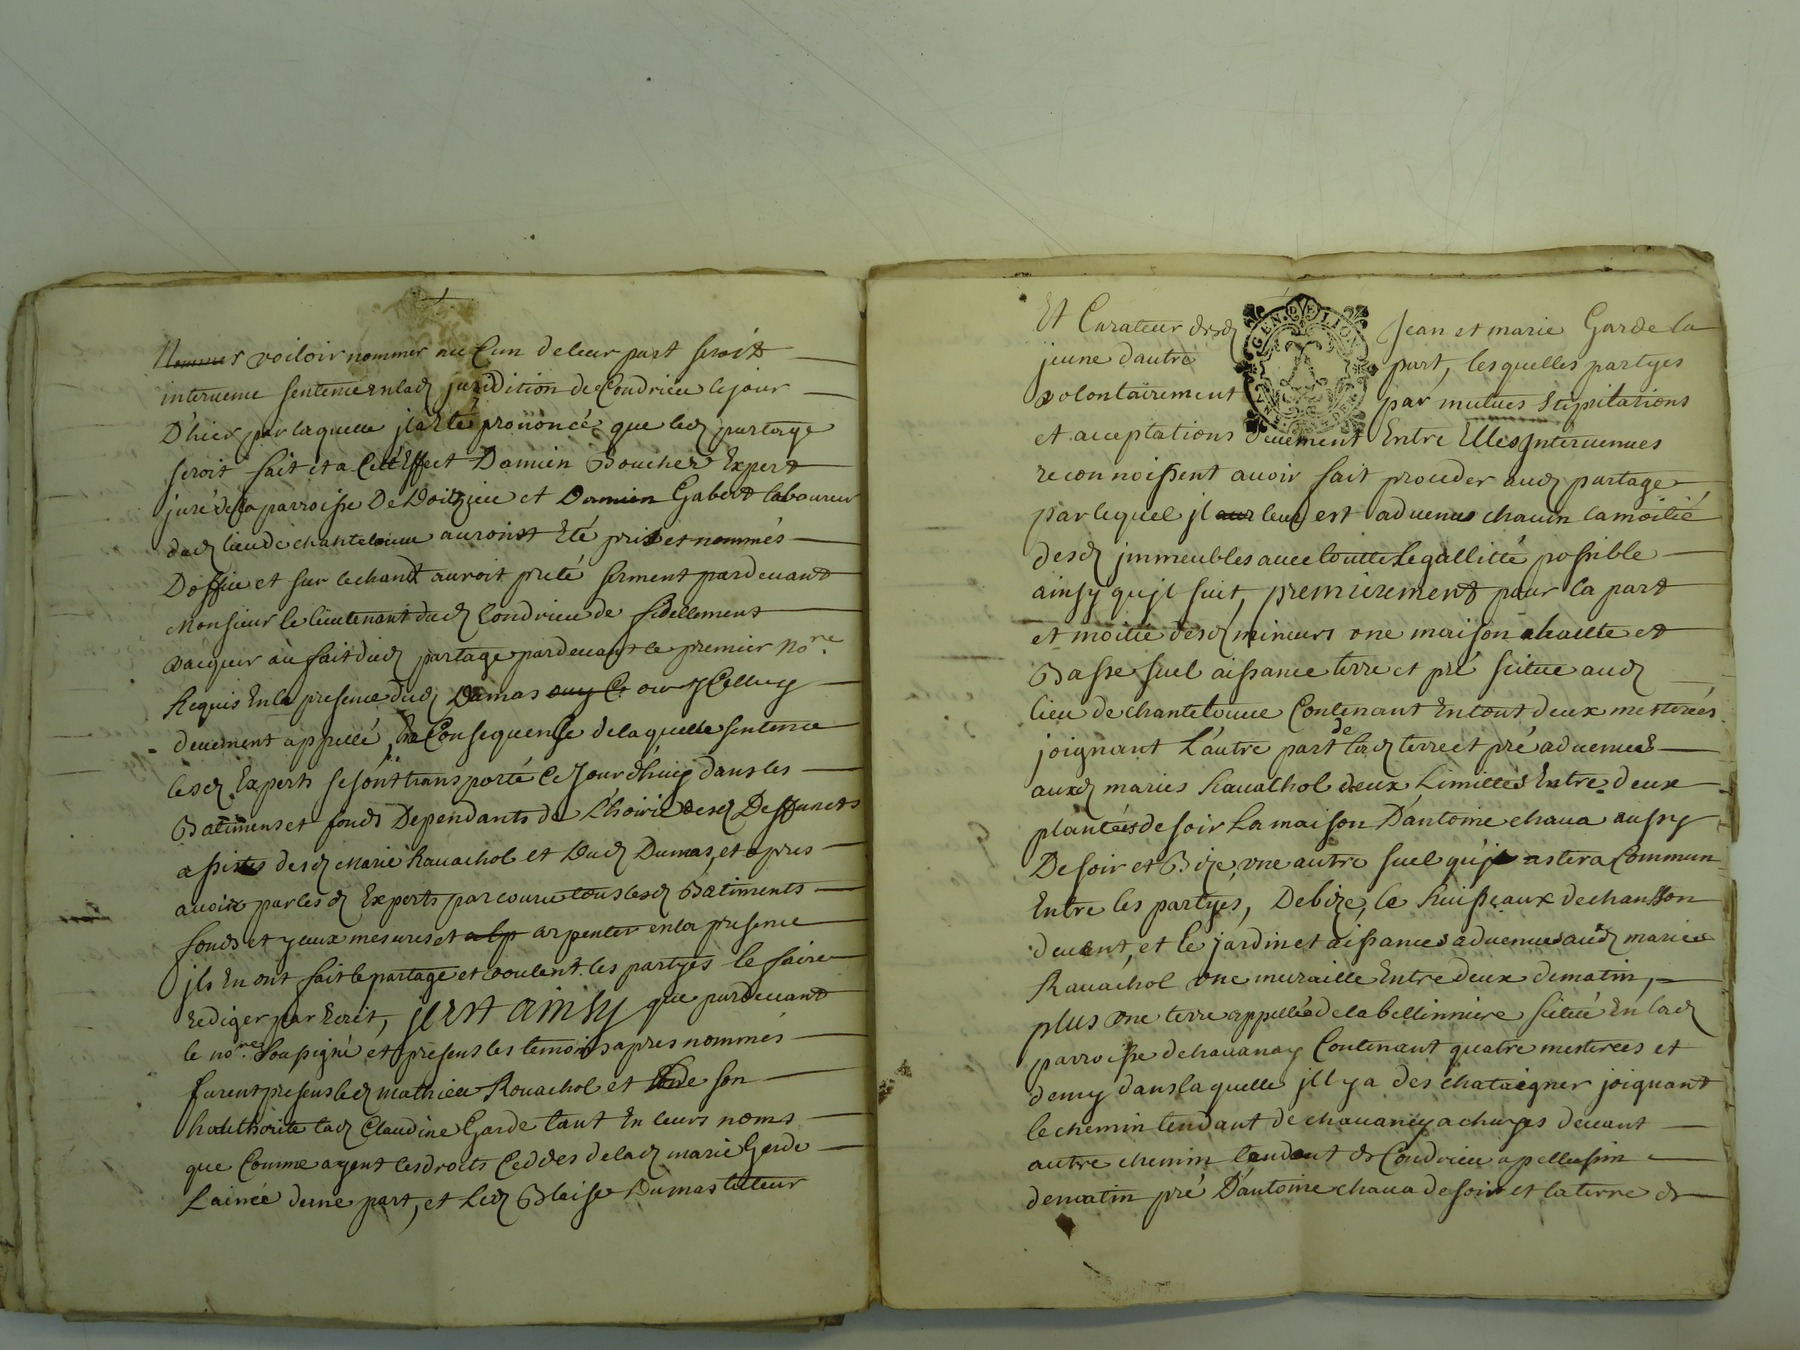 voiloir nommer aucun de leur part seroit
intervenue sentence en lad juridition de Condrieu le jour
D'hier par laquelle il a Eté prononcé que led partage
seroit fait et a Cett Effect Damien Boucher Expert
juré de la parroisse De Doitzieu et Damien Gabert laboureur
dud lieu de chantelouue auront Eté pris et nommés
D'office et sur le chant auroit preté serment pardeuant
Monsieur le lieutenant dud Condrieu de fidellement
vacquer au fait dud partage pardeuant le premier No.re
Requis En la presence dud Dumas ou yCelluy
deuement appellé, En Consequence de laquelle sentence
lesd Experts se sont transporté Ce Jourdhuy dans les
Batiments et fonds Dependants de L'hoirie desd Deffuncts
assistés desd Marie Rauachol et Dud Dumas, et apres
auoir par lesd Experts parcouru tous lesd Batiments
fonds et yceux mesurés et arpenter en la presence
ils En ont fait le partage et voulent les partyes le faire
rediger par Ecrit, il est ainsy que pardeuant
le no.re Soussigné et presens les temoins apres nommés
furent presens led mathieu Rouachol et de son
hauthorité lad Claudine Garde tant En leurs noms
que Comme ayent les droits Ceddés de lad marie Garde
Lainée d'une part, et Led Blaise Dumas tuteur
Et Curateur desd Jean et marie Garde la
jeune d'autre part, lesquelles partyes
volontairement par mutues Stipulations
et acceptations deuement Entre Elles Interuenues
reconnoissent auoir fait proceder aud partage
par lequel il leur est aduenu chacun la moitié
desd immeubles auec toutte Legallitté possible
ainsy qu'il suit, premierement pour la part
et moitié desd mineurs une maison haulte et
Basse suel aissance terre et pré scitué aud
lieu de chantelouue Contenant En tout deux mesterées
joignant L'autre part de lad terre et pré aduenue
auxd mariés Rauachol deux Limittes Entre deux
plantées de soir La maison D'antoine chaua aussy
De soir et Bize, une autre suel qu'il restera Commun
Entre les partyes, De bize, le Ruisseaux de chanson
deuant, et le jardin et aissances aduenue aud mariés
Rauachol une muraille Entre deux de matin,
plus une terre appellée de la bellinniere scitué En lad
parroisse de chauanay Contenant quatre mesterees et
demy dans laquelle jlly a des chataigner joignant
le chemin tendant de chauanay a chuyes deuant
autre chemin tendant de Condrieu a pellussin
de matin pré D'antoine chaua de soir et la terre de